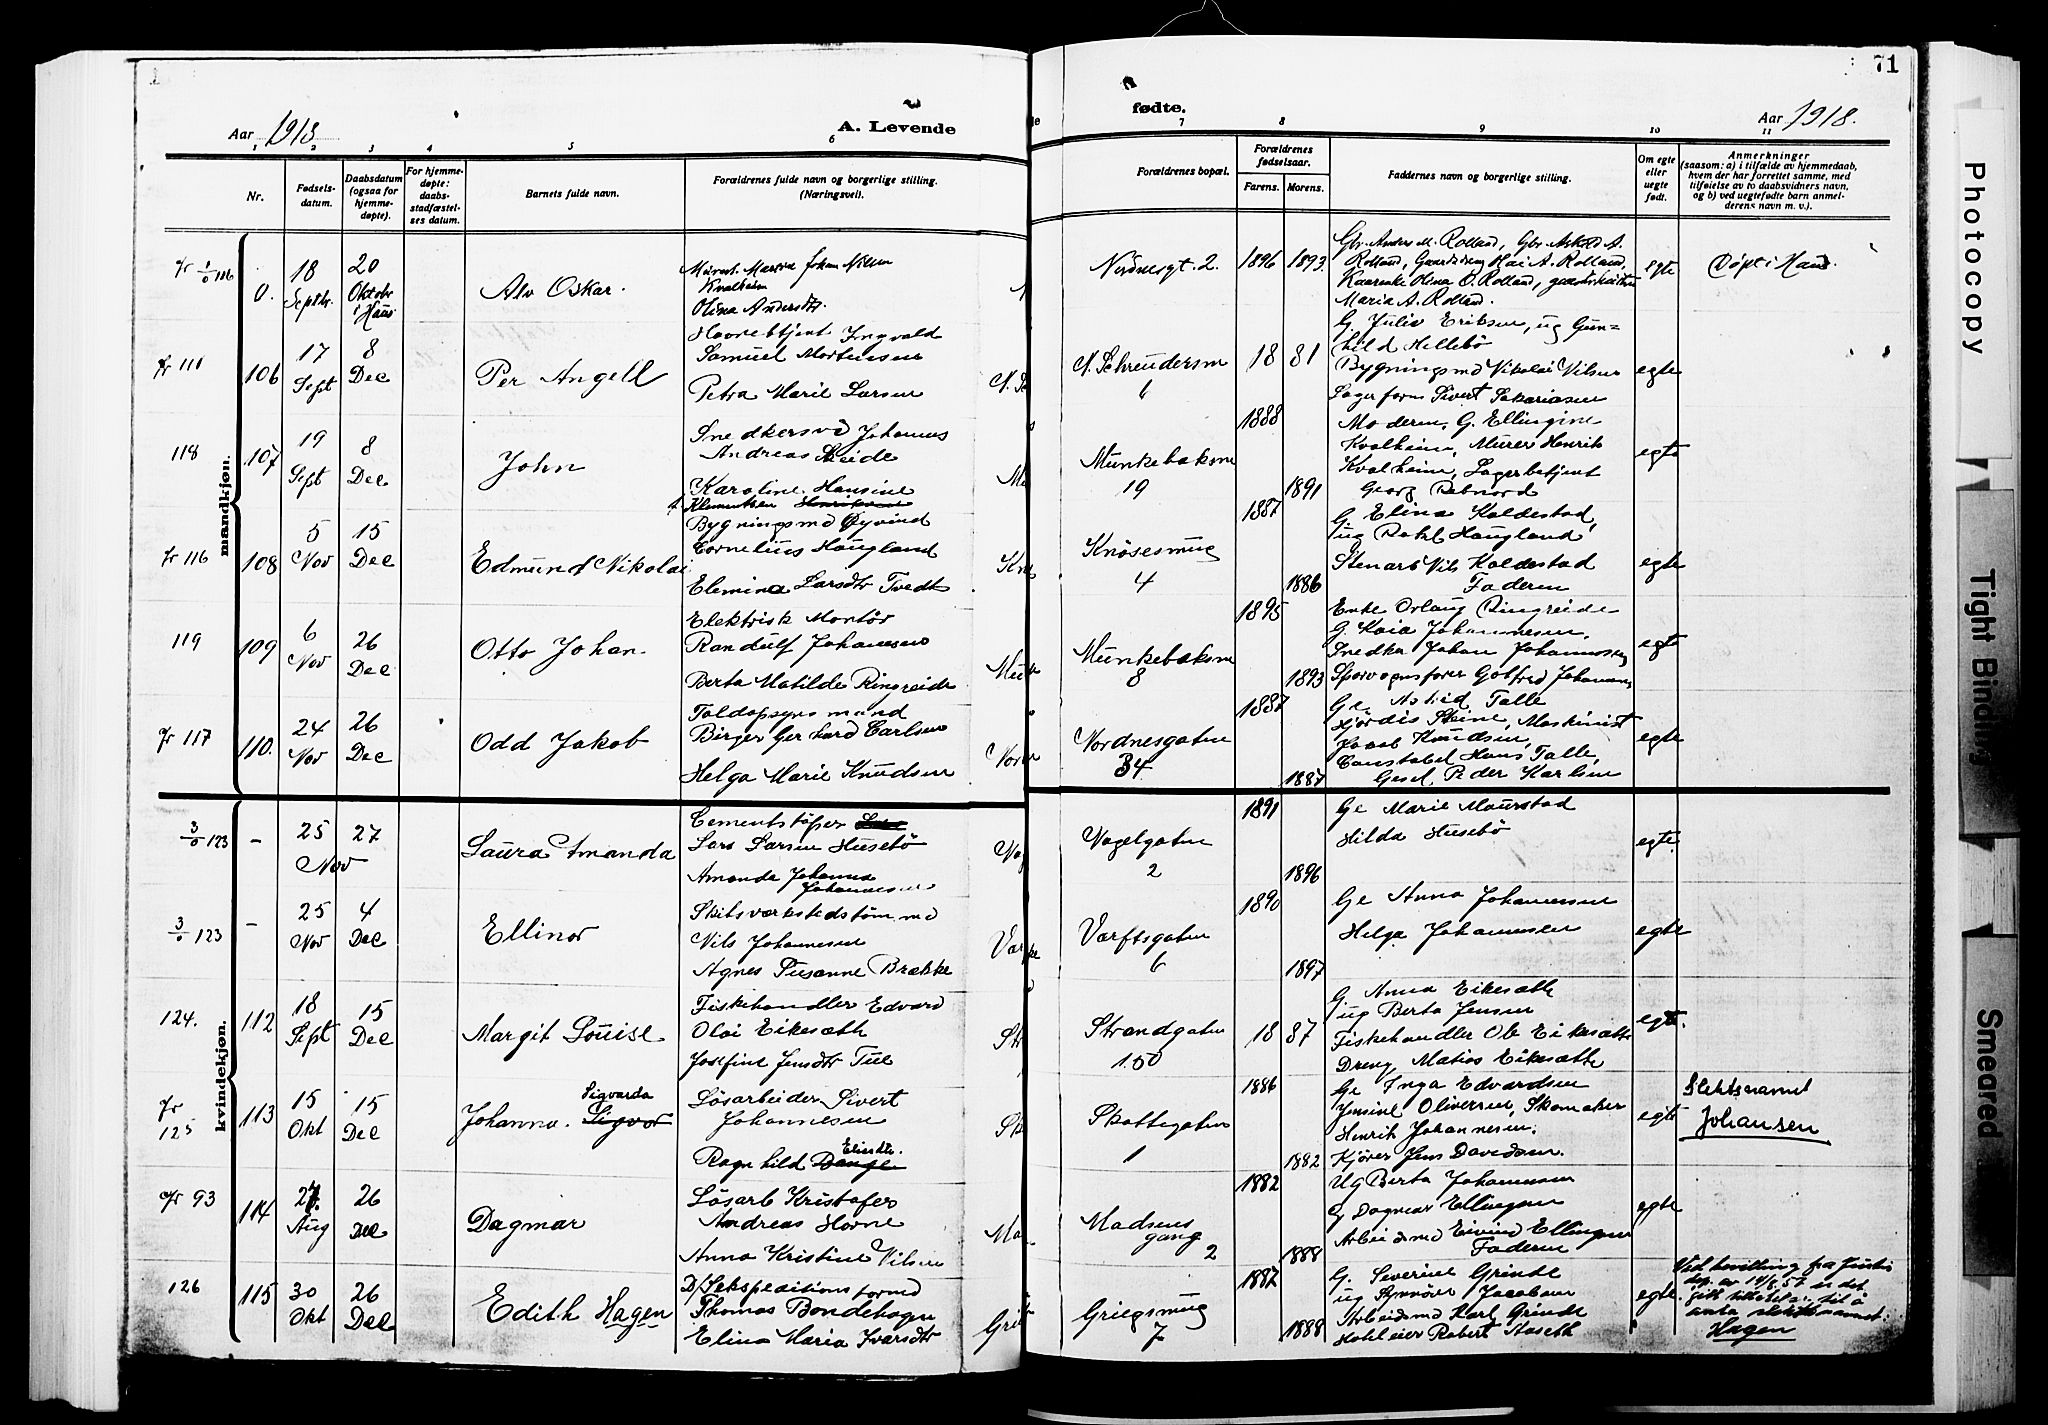 71
Aar 1918.
A. Levende
fødte.
Aar 1918.
1 2 3 4 5 6 7 8 9 10 11
Nr.
Fødsels-
datum.
Daabsdatum
(ogsaa for
hjemme-
døpte).
For hjemme-
døpte:
daabs-
stadfæstel-
ses datum.
Barnets fulde navn.
Forældrenes fulde navn og borgerlige stilling.
(Næringsvei).
Forældrenes bopæl.
Forældrenes
fødselsaar.
Farens. Morens.
Faddernes navn og borgerlige stilling.
Om egte
eller
uegte
født.
Anmerkninger
(saasom: a) i tilfælde av hjemmedaab,
hvem der har forrettet samme, med
tilføielse av to daabsvidners navn,
og b) ved uegtefødte barn anmel-
derens navn m. v.).
mandkjøn.
0.
18
Septbr.
20
Oktobr
i Haus
Alv Oskar.
Johan Nilsen
Kvalheim
Olina Andersdtr.
Nordnesgt. 2.
1896 1893.
Gbr. Anders M. Rolland, Gbr. Askild A.
Rolland,
Maria A. Rolland.
egte
Døpt i Haus.
106
17
Sept
8
Dec
Per Angell
Ingvald
Samuel Mortensen
Petra Marie Larsen
N. Schreudersm
6
18 81
G. Julie Eriksen, ug Gun-
hild Hellebø
Bygningsmd Nikolai Nilsen
Lagerform Sivert Sakariasen
egte
118
107
19
Sept
8
Dec
John
Snedkersvd Johannes
Andreas Skeide
Karoline Hansine
Klementsen
Munkebaksm
19
1888
1891
Moderen, G. Ellingine
Kvalheim, Murer Henrik
Kvalheim, Lagerbetjent
Georg
egte
fr 116
108
5
Nov
15
Dec
Edmund Nikolai
Bygningsmd Øyvind
Cornelius Haugland
Elemina Larsdtr Tvedt
Knøsesmug
4
1887
1886
G. Elina Koldestad,
ug Rakel Haugland
Stenarb Nils Koldestad
Faderen
egte
119
109
6
Nov
26
Dec
Otto Johan.
Elektrisk Montør
Randulf Johannesen
Berta Matilde Ringreide
Munkebaksm
8
1895
1893
Enke Orlaug Ringreide
G. Kaia Johannesen,
Snedker Johan Johannesen
Sporvognsfører Gotfred Johannesen
egte
fr 117
110.
24
Nov
26
Dec
Odd Jakob
Toldopsynsmand
Birger Gerhard Carlsen
Helga Marie Knudsen
Nordnesgaten
34
1887
1887
Ge Astrid Talle
Hjørdis Steine, Maskinist
Jacob Knudsen,
Constabel Hans Talle,
Gesel. Peder Karlsen
egte
kvindekjøn.
3/0 123
-
25
Nov
27
Laura Amanda
Cementstøper
Lars Larsen Husebø
Amanda Johanna
Johannesen
Vagelgaten
2
1891
1896
Ge Marie Maurstad
Hilda Husebø
egte
3/0 123
-
25
Nov
4
Dec
Ellinor
Skibsværkstedstømmd
Nils Johannesen
Agnes Susanne Brække
Værftsgaten
6
1890
1897
Ge Anna Johannesen
Helga Johannesen
egte
124.
112
18
Sept
15
Dec
Margit Louise
Fiskehandler Edvard
Olai Eikesæth
Josefine Jensdtr Tue
Strandgaten
150
18 87
G Anna Eikesæth
ug Berta Jensen
Fiskehandler Ole Eikesæth
Dreng Matias Eikesæth
egte.
fr
125
113
15
Okt
15
Dec
Johanna. Sigvarda
Sigvor
Løsarbeider Sivert
Johannesen
Ragnhild
Skottegaten
1
1886
1882
Ge Inga Edvardsen
Jensine Oliversen, Skomaker
Henrik Johannesen.
Kjører Jens Davidsen.
egte
Slektsnavnet
Johansen
fr 93
114
27.
Aug
26
Dec
Dagmar
Løsarb Kristofer
Andreas Horne
Anna Kristine Nilsen
Madsens
gang
2
1882
1888
Ug Berta Johannesen
g Dagmar Ellingsen
Arbeidsmd Eivind Ellingsen
Faderen
egte
126
115
30
Okt
26
Dec
Edith Hagen
D/Sekspeditions formd
Thomas Bondehagen
Elina Maria Ivarsdtr
Griegsmug
7
1887
1888
G. Severine Grinde
ug Synnøve Jacobsen
Arbeidsmd Karl Grinde
Robert Aaseth
egte
Ved bevilling fra Justis
dep. av 14/8.57 er det
gitt tillatelse til å
anta slektsnavnet:
Hagen
Photocopy
Tight Binding
Smeared